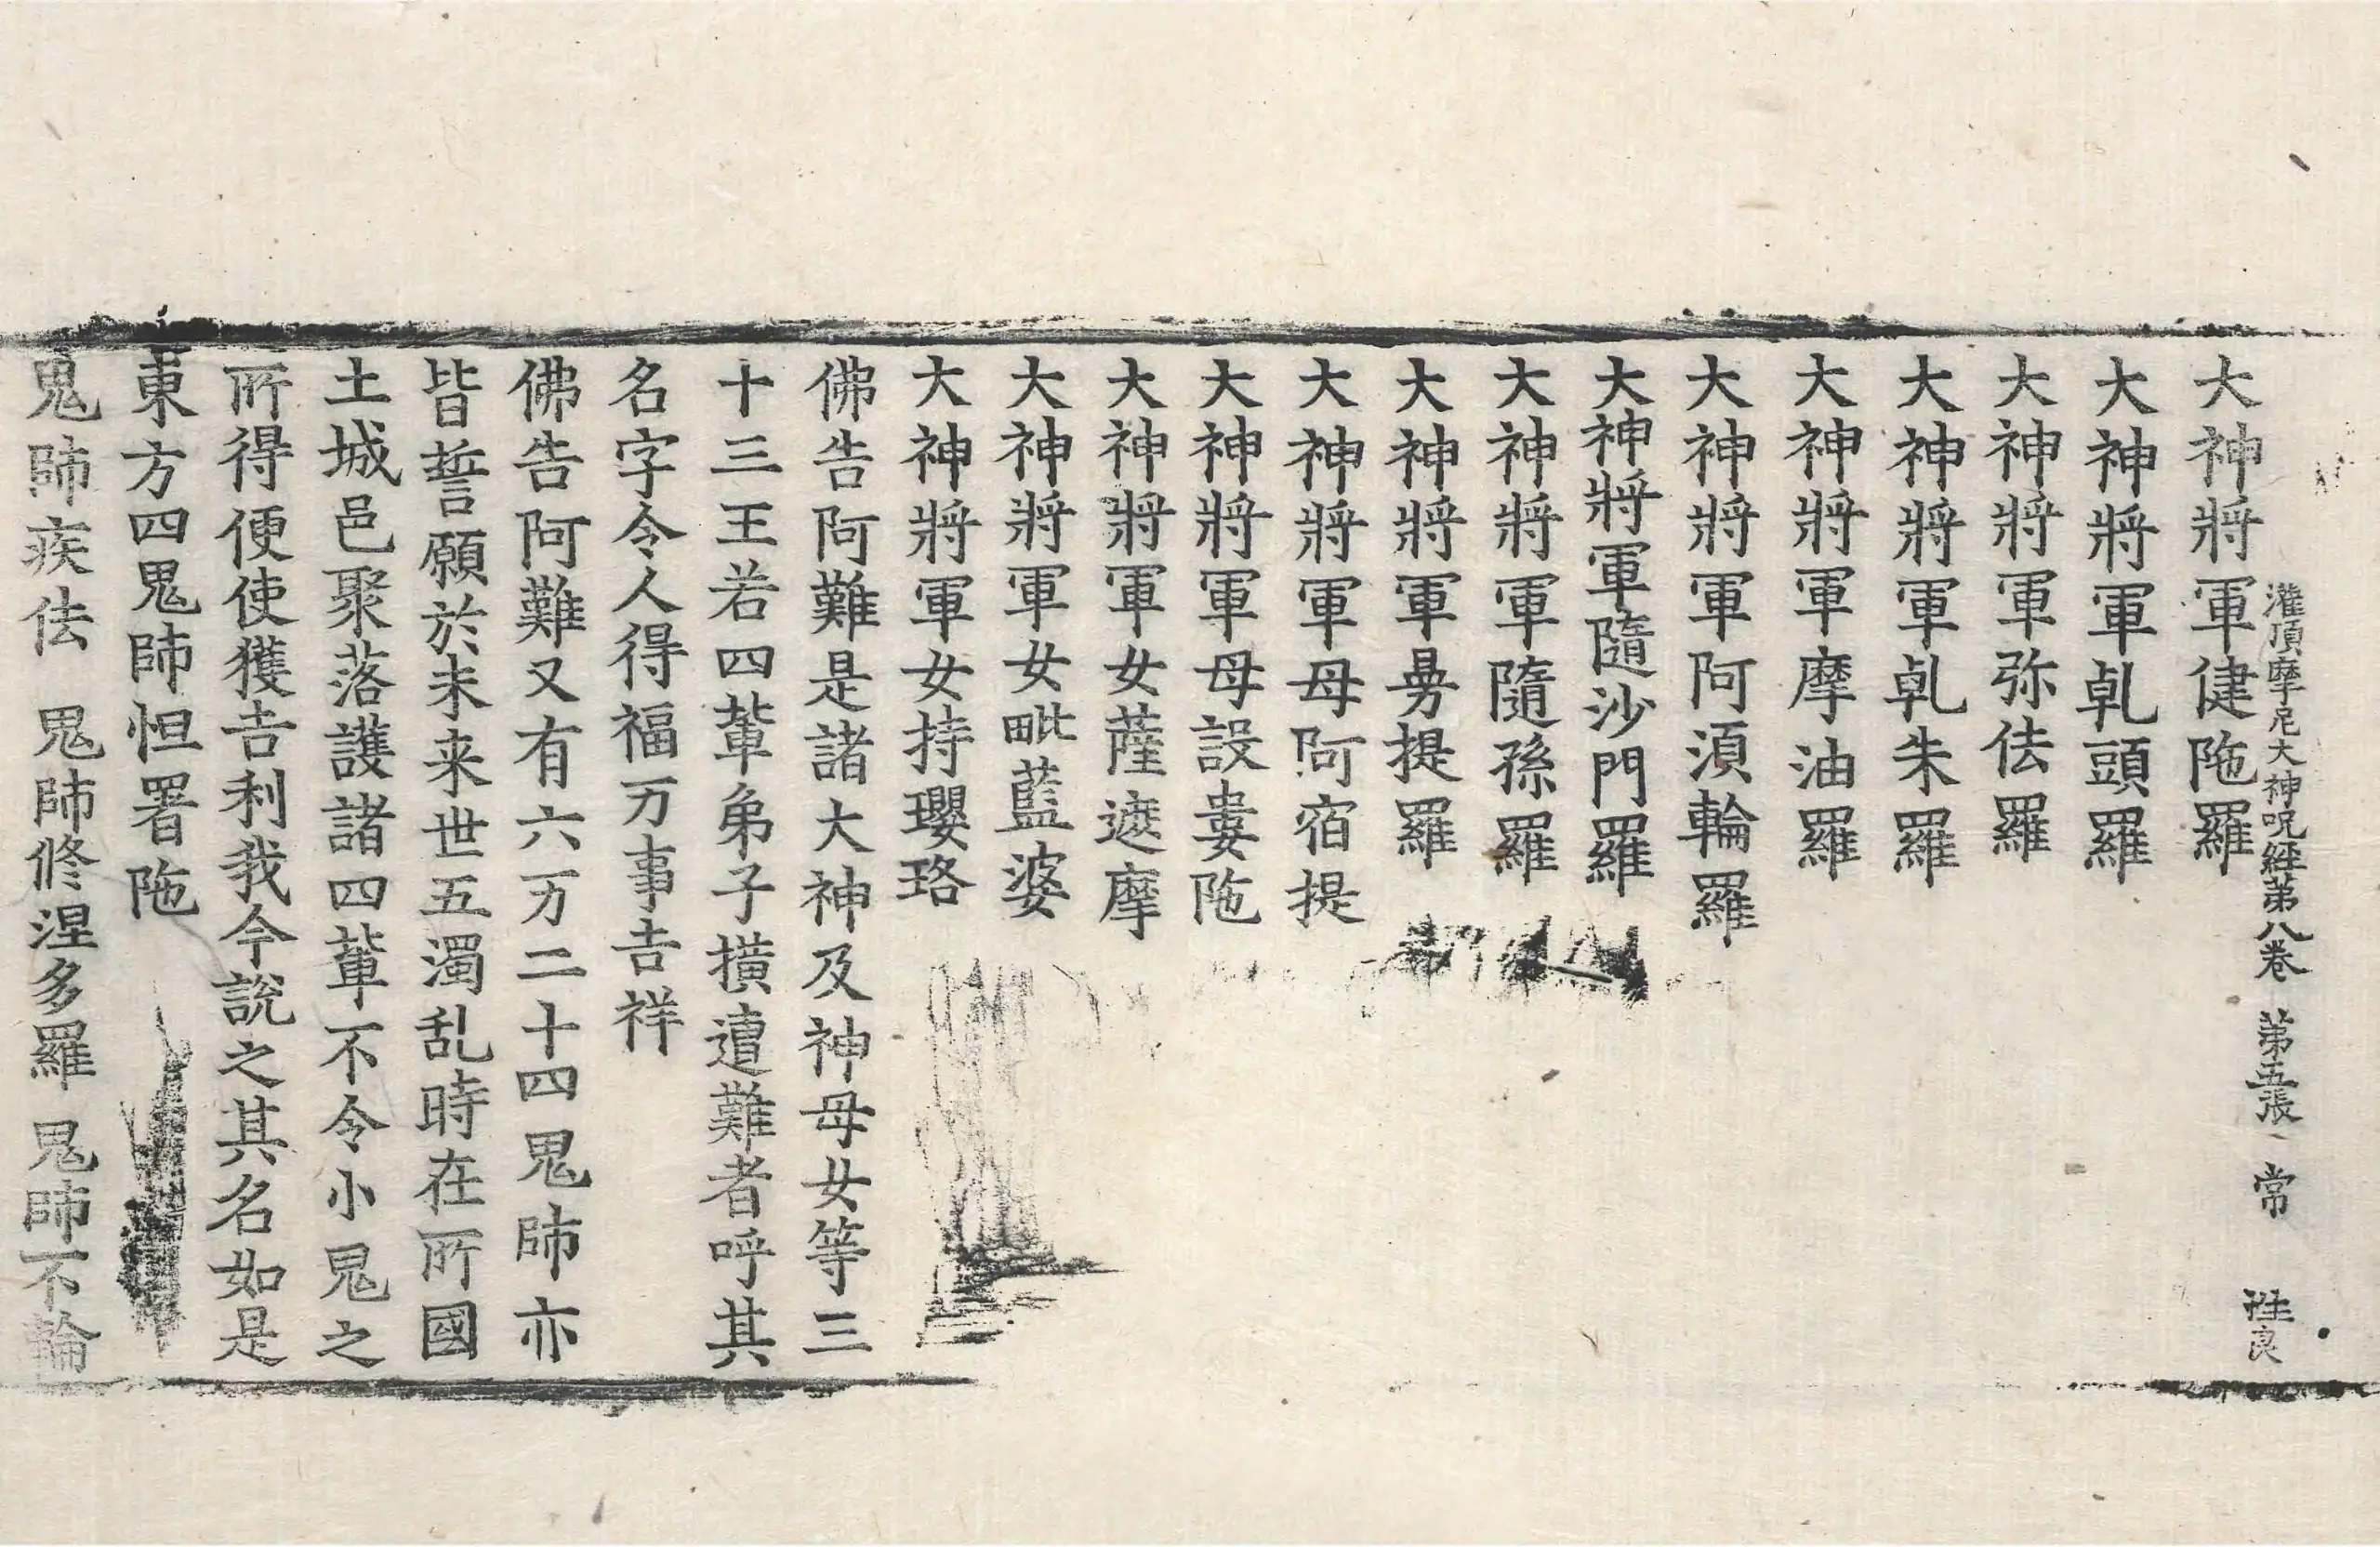 灌頂摩尼大神呪経苐八卷 苐五張 常 性良
大神將軍健陁羅
大神將軍乹頭羅
大神將軍弥佉羅
大神將軍乹朱羅
大神將軍摩油羅
大神將軍阿須輪羅
大神將軍隨沙門羅
大神將軍隨孫羅
大神將軍㬅提羅
大神將軍母阿宿提
大神將軍母設婁陁
大神將軍女薩遮摩
大神將軍女毗藍婆
大神將軍女持瓔珞
佛告阿難是諸大神及神母女等三
十三王若四軰弟子撗遭難者呼其
名字令人得福万事吉祥
佛告阿難又有六万二十四鬼師亦
皆誓願於未来世五濁乱時在所國
土城邑聚落護諸四軰不令小鬼之
所得便使獲吉利我今說之其名如是
東方四鬼師怛署陁
鬼師疾佉 鬼師修涅多羅 鬼師不輪